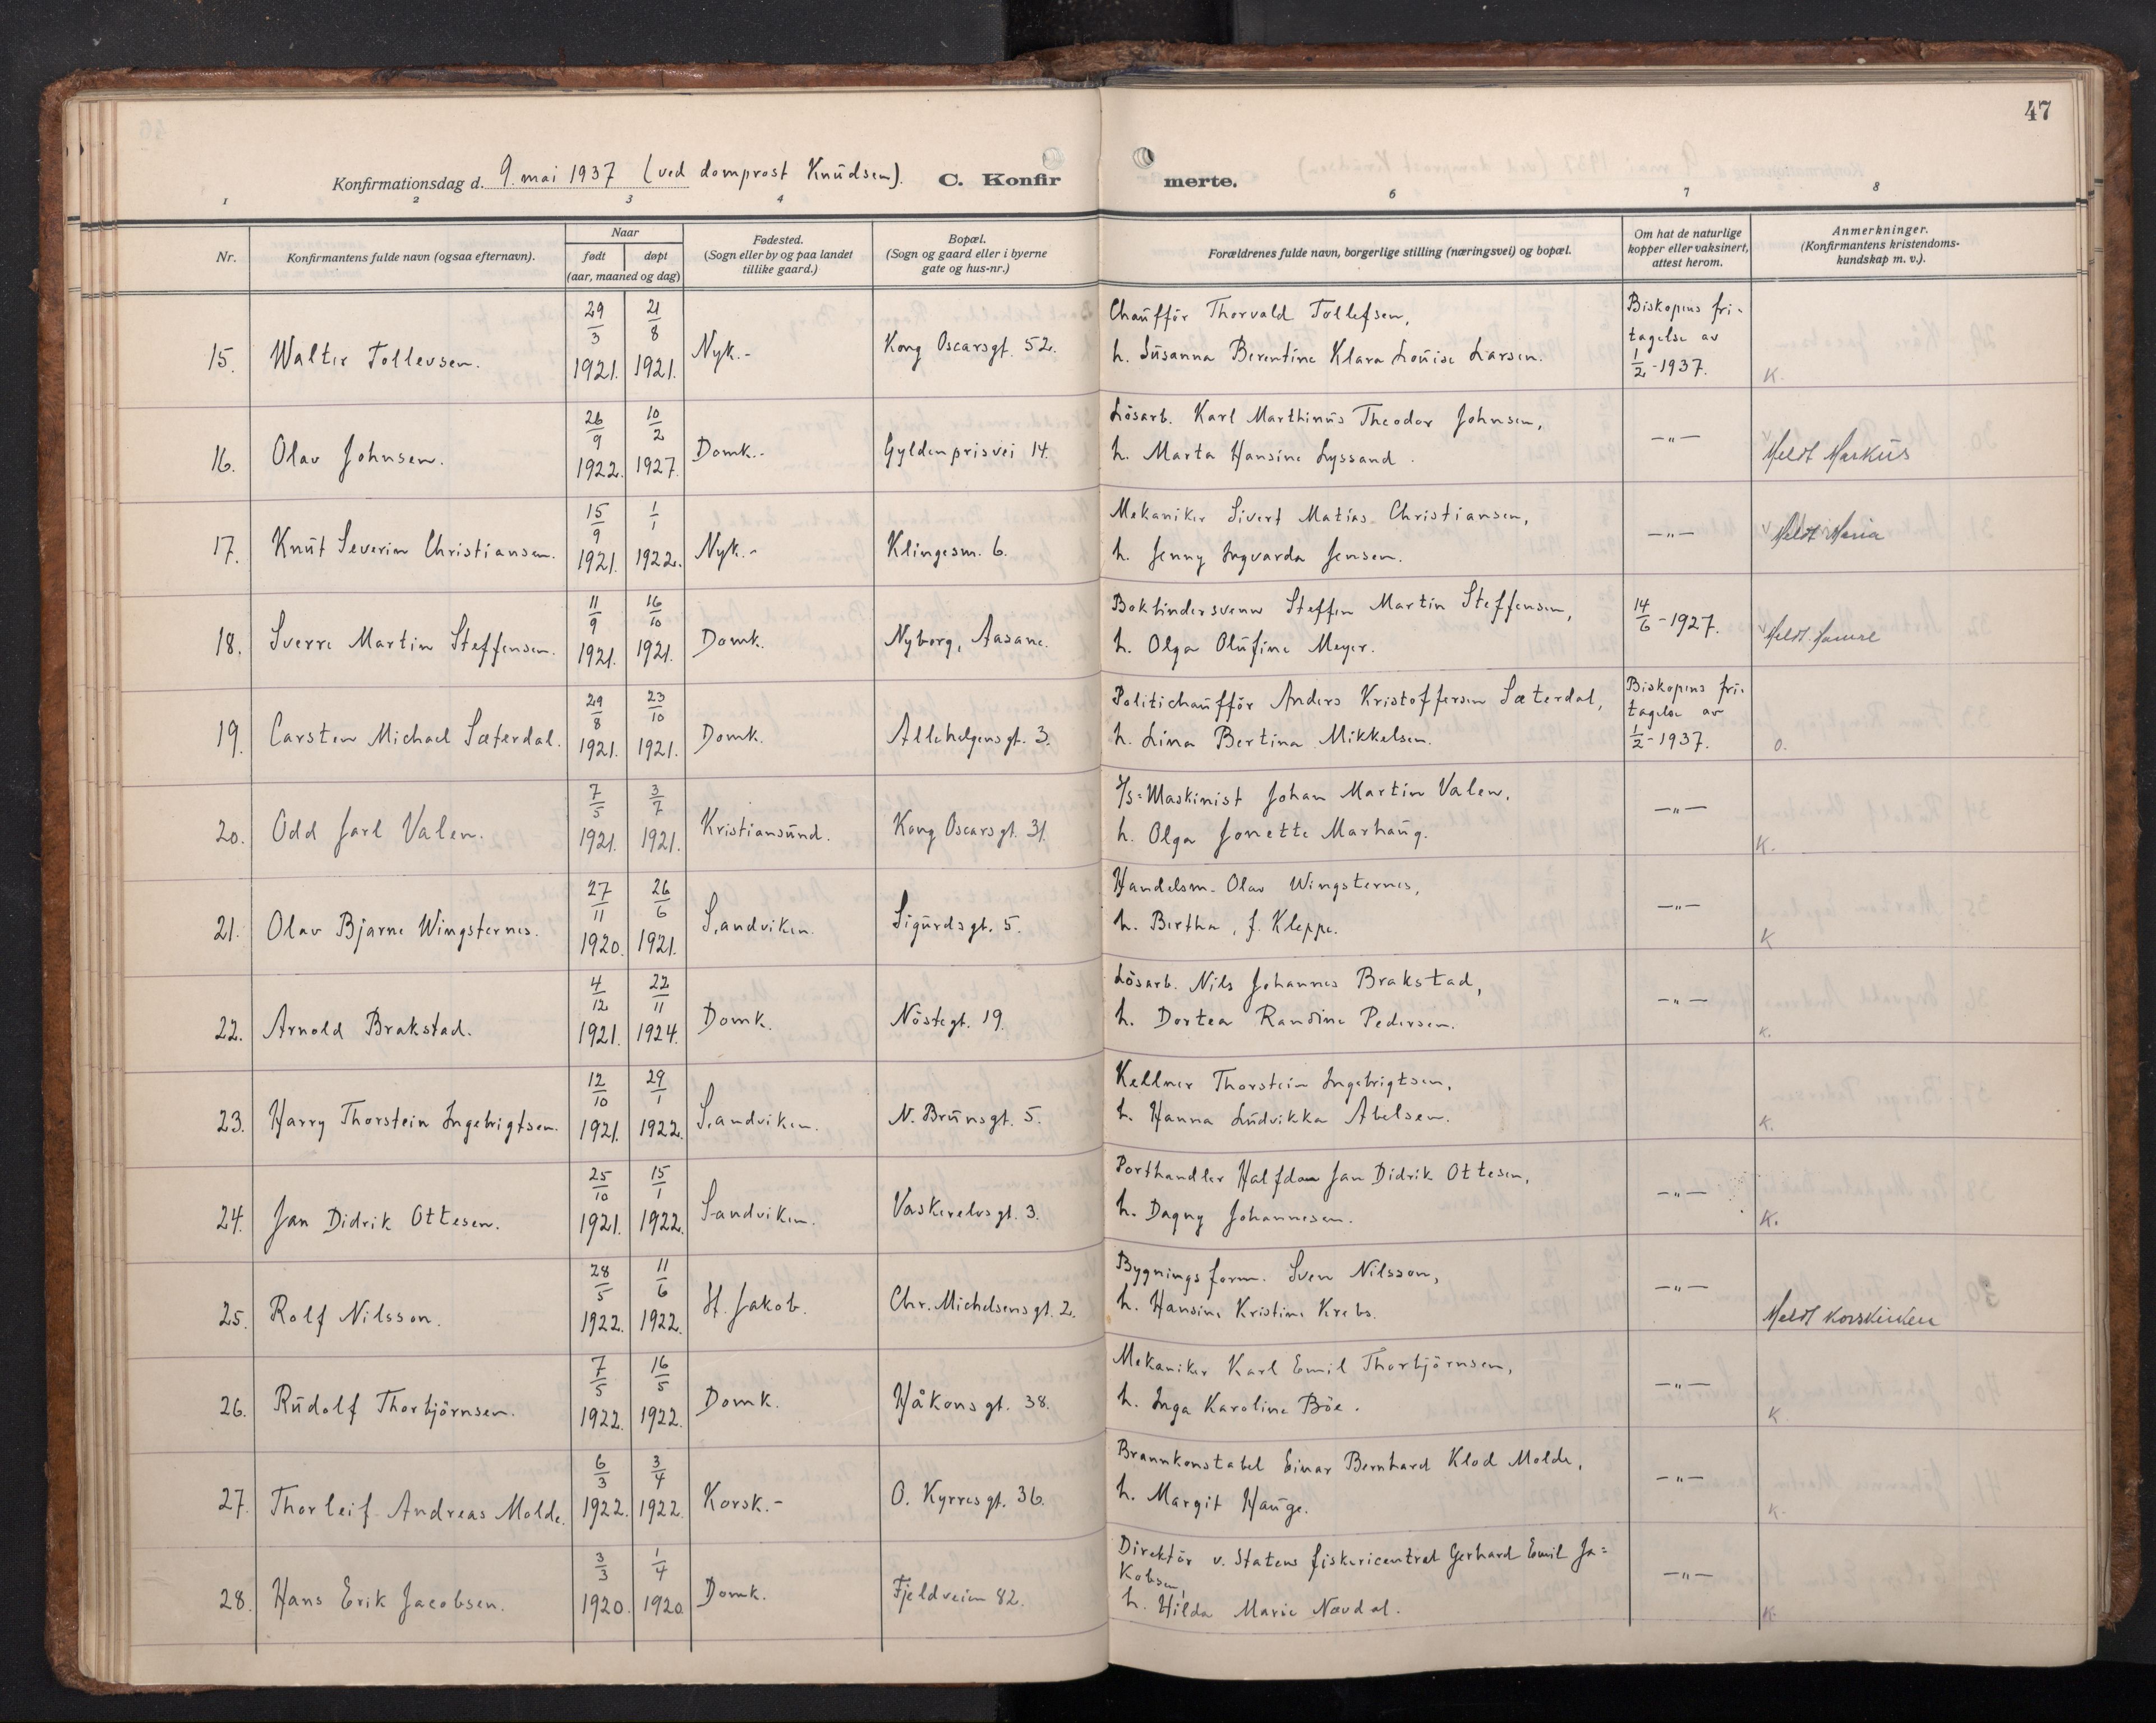 47
Konfirmationsdag d. 9. mai 1937 (ved domprost Knudsen). C. Konfirmerte.
1 2 3 4 6 7 8
Nr.
Konfirmantens fulde navn (ogsaa efternavn).
Naar
født døpt
(aar, maaned og dag)
Fødested.
(Sogn eller by og paa landet
tillike gaard.)
Bopæl.
(Sogn og gaard eller i byerne
gate og hus-nr.)
Forældrenes fulde navn, borgerlige stilling (næringsvei) og bopæl.
Om hat de naturlige
kopper eller vaksinert,
attest herom.
Anmerkninger.
(Konfirmantens kristendoms-
kundskap m. v.).
15. Walter Tollevsen. 29/3 1921. 21/8 1921. Nyk.- Kong Oscarsgt. 52.
Chaufför Thorvald Tollefsen,
h. Susanna Berentine Klara Louise Larsen.
Biskopens fri-
tagelse av
1/2-1937.
K.
16. Olav Johnsen. 26/9 1922. 10/2 1927. Domk.- Gyldenprisvei 14.
Lösarb. Karl Marthinus Theodor Johnsen,
h. Marta Hansine Lyssand.
—"—
Meldt Markus
17. Knut Severin Christiansen. 15/9 1921. 1/1 1922. Nyk.- Klingesm. 6.
Mekaniker Sivert Matias Christiansen,
h. Jenny Ingvarda Jensen.
—"—
Meldt Maria
18. Sverre Martin Steffensen. 11/9 1921. 16/10 1921. Domk. Nyborg, Aasane.
Bokbindersvenn Steffen Martin Steffensen,
h. Olga Olufine Meyer.
14/6-1927.
Meldt
19. Carsten Michael Sæterdal. 29/8 1921. 23/10 1921. Domk. Allehelgensgt. 3.
Politichaufför Anders Kristoffersen Sæterdal,
h. Lina Bertina Mikkelsen.
Biskopens fri-
tagelse av
1/2-1937.
O.
20. Odd Jarl Valen. 7/5 1921. 3/7 1921. Kristiansund. Kong Oscarsgt. 31.
Maskinist Johan Martin Valen,
h. Olga Jonette Marhaug.
—"—
K.
21. Olav Bjarne Wingsternes. 27/11 1920. 26/6 1921. Sandviken. Sigurdsgt. 5.
Handelsm. Olav Wingsternes,
h. Bertha, f. Kleppe.
—"—
K
22. Arnold Brakstad. 4/12 1921. 22/11 1924. Domk. Nöstegt. 19.
Lösarb. Nils Johannes Brakstad,
h. Dortea Randine Pedersen.
—"—
K.
23. Harry Thorstein Ingebrigtsen. 12/10 1921. 29/1 1922. Sandviken. N. Brunsgt. 5.
Kellner Thorstein Ingebrigtsen,
h. Hanna Ludvikka Abelsen.
K.
24. Jan Didrik Ottesen. 25/10 1921. 15/1 1922. Sandviken. Vaskerelvsgt. 3.
Porthandler Halfdan Jan Didrik Ottesen,
h. Dagny Johannesen.
—"—
K.
25. Rolf Nilsson. 28/5 1922. 11/6 1922. St. Jakob. Chr. Michelsensgt. 2.
Bygningsform. Sven Nilsson,
h. Hansine Kristine Krebs.
—"—
Meldt Korskirken
26. Rudolf Thorbjörnsen. 7/5 1922. 16/5 1922. Domk. Håkonsgt. 38.
Mekaniker Karl Emil Thorbjörnsen,
h. Inga Karoline Böe.
—"—
K
27. Thorleif Andreas Molde. 6/3 1922. 3/4 1922. Korsk.- O. Kyrresgt. 36.
Brannkonstabel Einar Bernhard Klod Molde,
h. Margit Hauge.
—"—
K.
28. Hans Erik Jacobsen. 3/3 1920. 1/4 1920. Domk. Fjeldveien 82.
Direktör v. Statens fiskericentral Gerhard Emil Ja=
kobsen,
h. Hilda Marie Nævdal.
—"—
K.